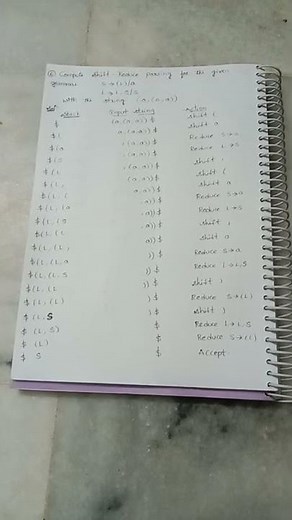 ⑥ Compute shift-Reduce parsing for the given
grammar S→(L)/a
L→L,S/S
with the string (a,(a,a))
Stack Input string Action
$ (a,(a,a))$ shift (
$( a,(a,a))$ shift a
$(a ,(a,a))$ Reduce S→a
$(S ,(a,a))$ Reduce L→S
$(L ,(a,a))$ shift ,
$(L, (a,a))$ shift (
$(L,( a,a))$ shift a
$(L,(a ,a))$ Reduce S→a
$(L,(S ,a))$ Reduce L→S
$(L,(L ,a))$ shift ,
$(L,(L, a))$ shift a
$(L,(L,a ))$ Reduce S→a
$(L,(L,S ))$ Reduce L→L,S
$(L,(L ))$ shift )
$(L,(L) )$ Reduce S→(L)
$(L,S )$ shift )
$(L,S) $ Reduce L→L,S
$(L) $ Reduce S→(L)
$ S $ Accept